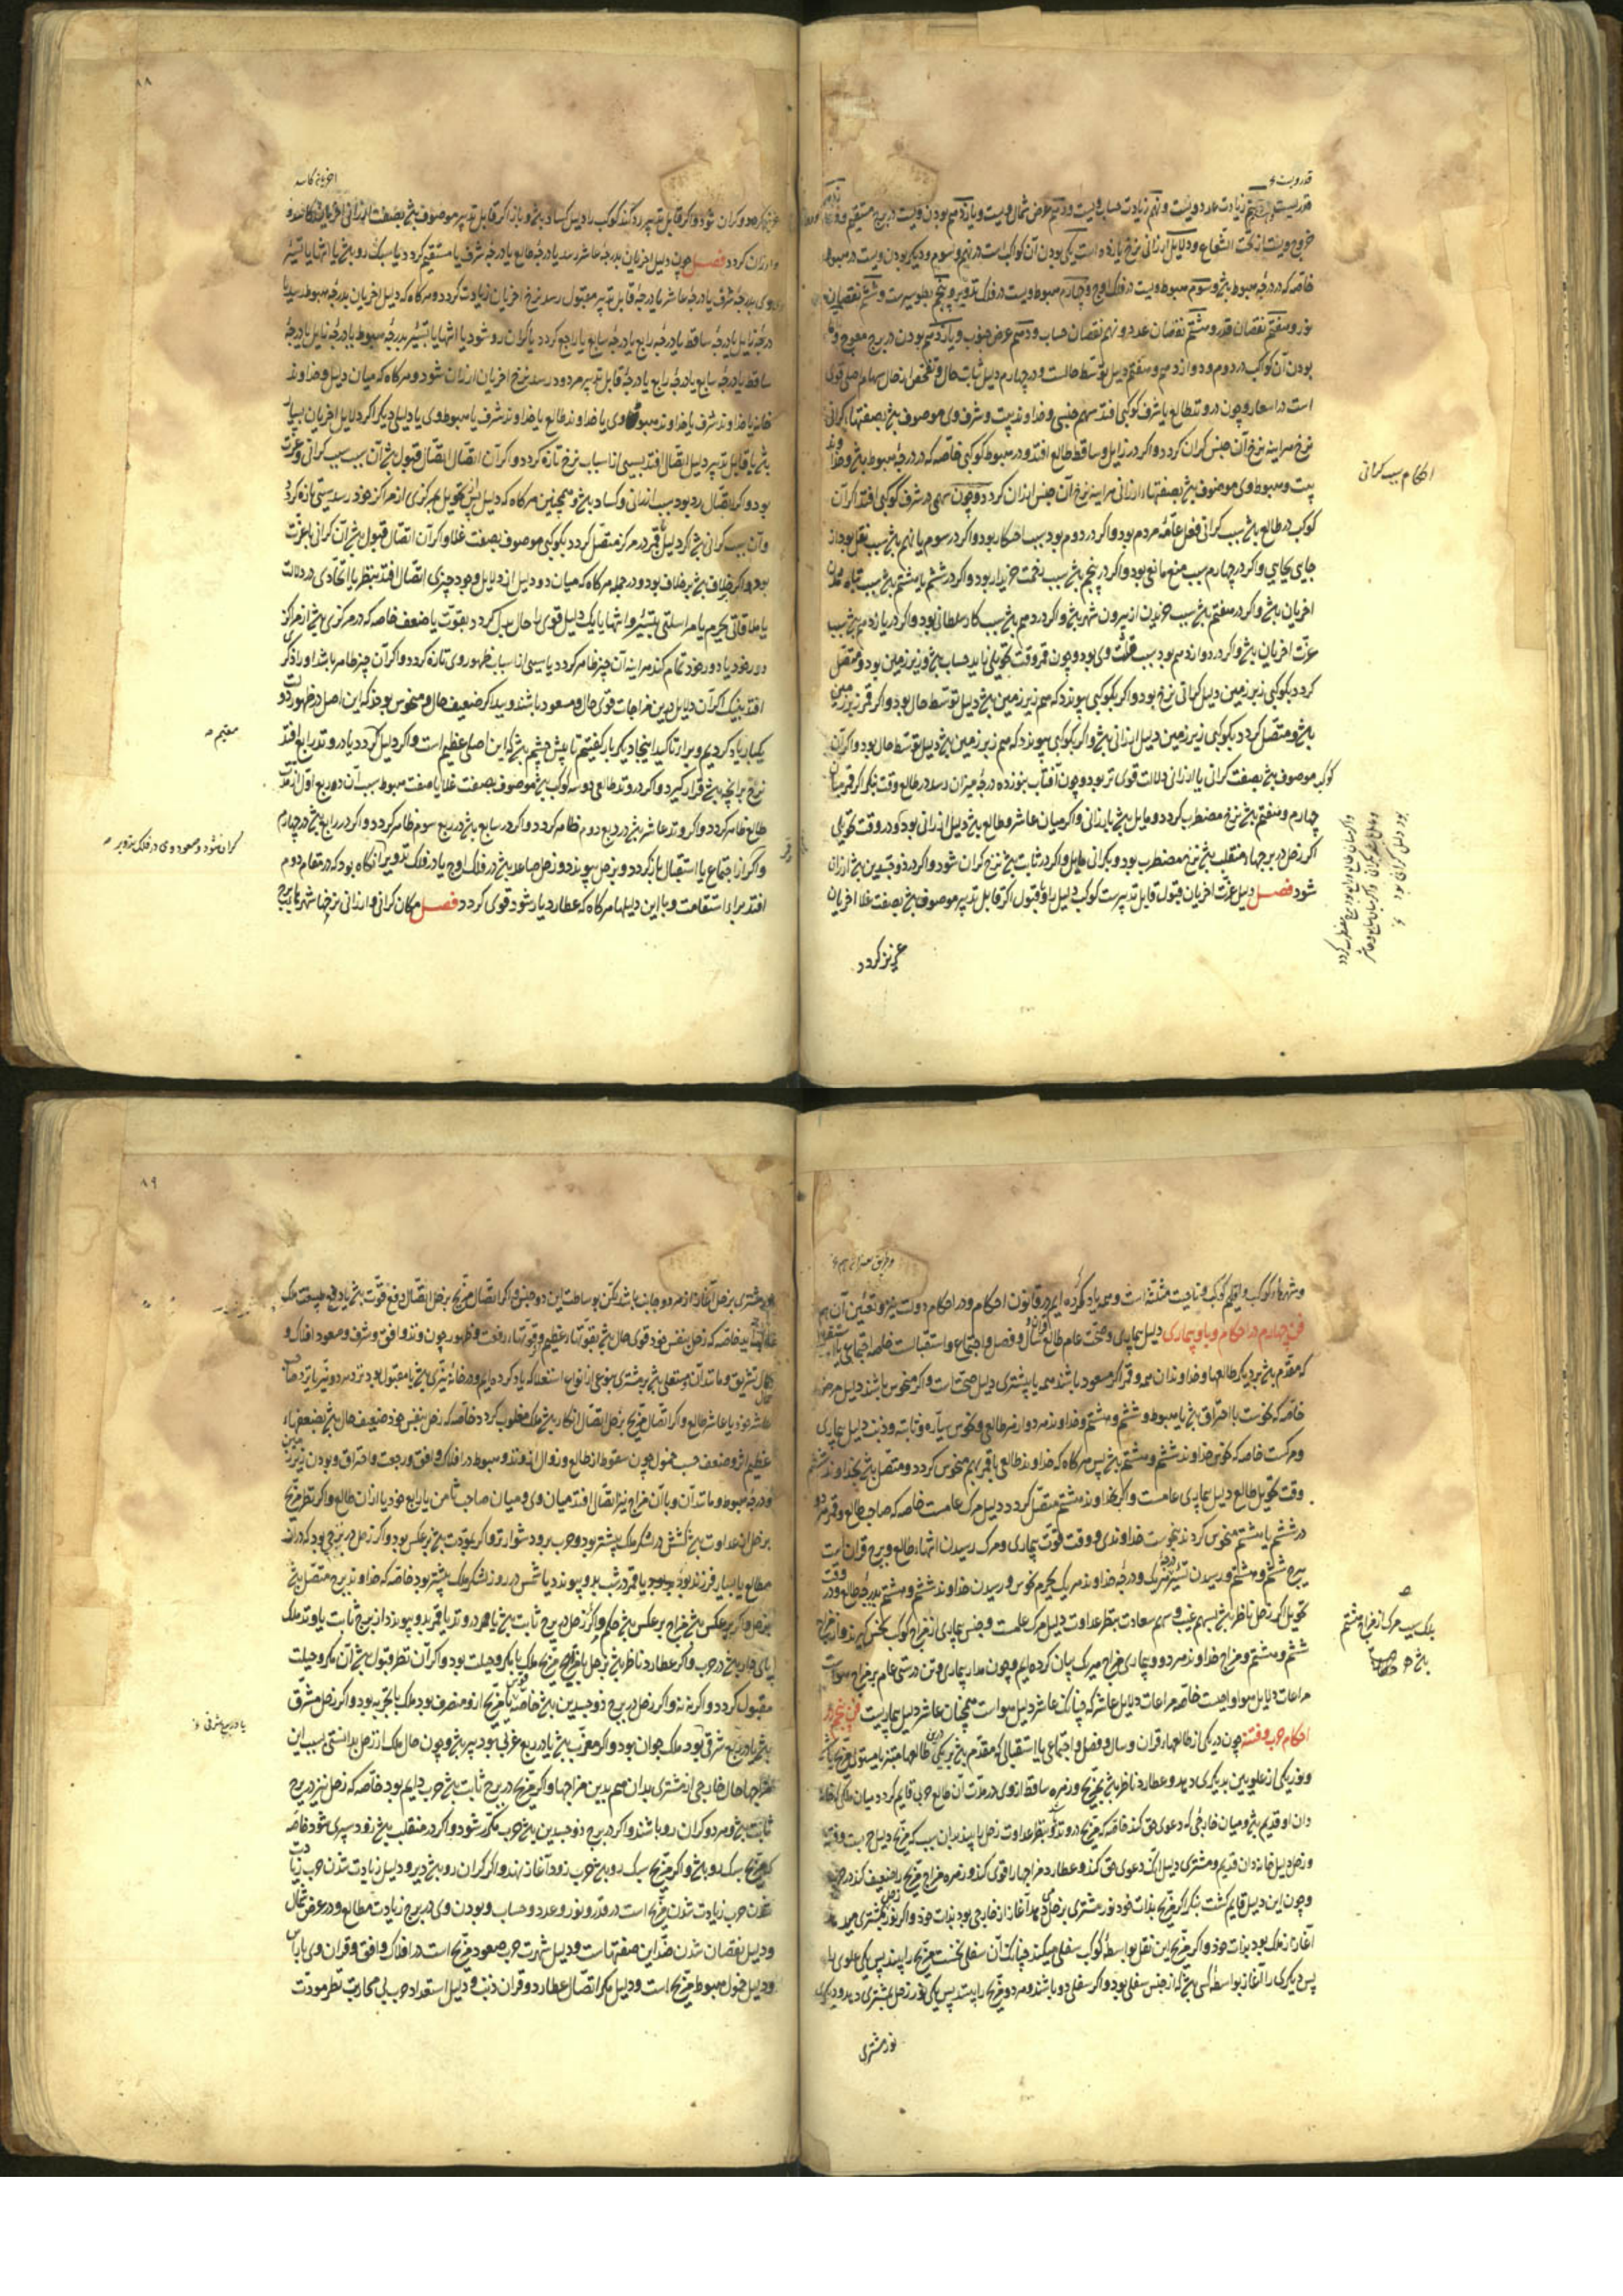 قدر ویست و نهم زیادت عدد ویست و نهم زیادت حساب ویست و دهم عرض شمال ویست و یازدهم بودن ویست در برج مستقیم
خروج ویست از تحت الشعاع و دلایل ارزانی نرخ یازده است یکی بودن آن کوکب است در نهم و سوم و دیگر بودن ویست در هبوط
خاصه که در درجهٔ هبوط بوَد و سوم هبوط ویست در فلک اوج و چهارم هبوط ویست در فلک تدویر و پنجم بطوء سیرست و ششم نقصان
نور و هفتم نقصان قدر و هشتم نقصان عدد و نهم نقصان حساب و دهم عرض جنوب و یازدهم بودن در برج معوج
بودن آن کوکب در دوم و دوازدهم و هفتم دلیل توسط حالست و در چهارم دلیل ثبات حال
است در اسعار و چون در وتد طالع یا شرف کوکبی افتد سهم جنسی و خداوند بیت و شرف وی موصوف بصفتهاء گرانی
نرخ هراینه نرخ آن جنس گران گردد و اگر در زایل و ساقط طالع افتد و در هبوط کوکبی خاصه که در درجهٔ هبوط
بیت و هبوط وی موصوف بصفتهاء ارزانی هراینه نرخ آن جنس ارزان گردد و چون سهمی در شرف کوکبی افتد اگر آن
احکام سبب گرانی
کوکب در طالع باشد سبب گرانی فعل عامهٔ مردم بود و اگر در دوم بود سبب احتکار بود و اگر در سوم یا نهم باشد سبب نقل بود از
جای بجایی و اگر در چهارم سبب منع مانعی بود و اگر در پنجم باشد سبب نعمت خریدار بود و اگر در ششم یا هشتم باشد سبب تباه شدن
اخریان باشد و اگر در هفتم باشد سبب خریدن از بیرون شهر باشد و اگر در دهم باشد سبب کار سلطانی بود و اگر در یازدهم باشد سبب
عزت اخریان باشد و اگر در دوازدهم بود سبب قلت وی بود و چون قمر وقت تحویلی زاید حساب باشد و زیر زمین بود و متصل
گردد بکوکبی زیر زمین دلیل گرانی نرخ بود و اگر بکوکبی پیوندد که هم زیر زمین باشد دلیل توسط حال بود و اگر قمر زیر زمین
باشد و متصل گردد بکوکبی زیر زمین دلیل ارزانی باشد و اگر بکوکبی پیوندد که هم زبر زمین باشد دلیل توسط حال بود و اگر آن
کوکب موصوف باشد بصفت گرانی یا ارزانی دلالت قوی تر بود و چون آفتاب بنوزده درجهٔ میزان رسد در طالع وقت بنگر اگر قمر میان
چهارم و هفتم باشد نرخ مضطرب گردد و مایل باشد بارزانی و اگر میان عاشر و طالع باشد دلیل ارزانی بود و در وقت تحویلی
اگر زحل در برجهاء منقلب باشد نرخ مضطرب بود و بگرانی مایل و اگر در ثابت باشد نرخ گران شود و اگر در ذو جسدین باشد ارزان
شود فصل دلیل عزت اخریان قبول قابل تدبیرست کوکب دلیل را و قبول اگر قابل تدبیر موصوف باشد بصفت غلا اخریان
عزیز گردد
۸۸
و ارزان گردد فصل چون دلیل اخریان بدرجهٔ عاشر رسد یا درجهٔ طالع یا درجهٔ شرف یا مستقیم گردد یا سبک رو باشد یا انتها یا تسییر
وی بدرجهٔ شرف یا درجهٔ عاشر یا درجهٔ قابل تدبیر مقبول رسد نرخ اخریان زیادت گردد و هرگاه که دلیل اخریان بدرجهٔ هبوط رسد یا
درجهٔ زایل یا درجهٔ ساقط یا درجهٔ رابع یا درجهٔ سابع یا راجع گردد یا گران رو شود یا انتها یا تسییر بدرجهٔ هبوط یا درجهٔ زایل یا درجهٔ
ساقط یا درجهٔ سابع یا درجهٔ رابع یا درجهٔ قابل تدبیر مردود رسد نرخ اخریان ارزان شود و هرگاه که میان دلیل و خداوند
خانه یا خداوند شرف یا خداوند هبوط وی یا خداوند طالع یا خداوند شرف یا هبوط وی یا دلیلی دیگر اگر دلایل اخریان بسیار
باشد یا قابل تدبیر دلیل اتصال افتد بسببی از اسباب نرخ تازه گردد و اگر آن اتصال اتصال قبول باشد آن سبب سبب گرانی و عزت
بود و اگر اتصال رد بود سبب ارزانی و کساد باشد و همچنین هرگاه که دلیل پس تحویل بمرکزی از مراکز خود رسد سببی تازه گردد
و آن سبب گرانی باشد اگر دلیل یا قمر در مرکز متصل گردد بکوکبی موصوف بصفت غلا و اگر آن اتصال قبول باشد آن گرانی با عزت
بود و اگر خلاف باشد بر خلاف بود و در جمله هرگاه که میان دو دلیل از دلایل وجود چیزی اتصال افتد بنظر یا اتحادی در دلالت
یا ملاقاتی بجرم یا مراسلتی بتسییر و انتها یا یک دلیل قوی را حال بدل گردد بقوت یا ضعف خاصه که در مرکزی باشد از مراکز
دور خود یا دور خود تمام کند هراینه آن چیز ظاهر گردد یا سببی از اسباب ظهور وی تازه گردد و اگر آن چیز ظاهر باشد او را ذکری
افتد بنیک اگر آن دلایل درین مزاجات قوی حال و مسعود باشند و ببد اگر ضعیف حال و منحوس بوند که این اصل در ظهور
یکبار یاد کردیم و برای تاکید اینجا دیگر بار گفتیم تا پیش چشم باشد که این اصلی عظیم است و اگر دلیل گردد یا در وتد رابع افتد
مقیم
نرخ بر آنچه باشد قرار گیرد و اگر در وتد طالعی دو سه کوکب باشد موصوف بصفت غلا یا صفت هبوط سبب آن در ربع اول از مدت
طالع ظاهر گردد و اگر در وتد عاشر باشد در ربع دوم ظاهر گردد و اگر در سابع باشد در ربع سوم ظاهر گردد و اگر در رابع باشد در چهارم
گران شود و صعود وی در فلک تدویر
و اگر از اجتماع یا استقبال باز گردد و بزحل پیوندد و زحل صاعد باشد در فلک اوج یا در فلک تدویر آنگاه بود که در مقام دوم
افتد برای استقامت و با این دلیلها هرگاه که عطارد یار شود قوی گردد فصل مکان گرانی و ارزانی نرخها شهرهاء برج
و شهرهاء کوکب و اقلیم کوکب و ناحیت مثلثه است و همه یاد کرده‌ایم در قانون احکام و در احکام دولت نیز و تعیین آن هم
فن چهارم در احکام وبا و بیماری دلیل بیماری و صحت عام طالع قران و سال و فصل و اجتماع و استقبالست خاصه اجتماعی یا استقبالی
که مقدم باشد بر دیگر طالعها و خداوندان همه و قمر اگر مسعود باشند همه یا بیشتری دلیل صحت است و اگر منحوس باشند دلیل مرض
خاصه که نحوست با احتراق باشد یا هبوط و ششم و هشتم و خداوند هر دو از هر طالعی و نحوس سیاره و ثابته و ذنب دلیل بیماری
و مرگست خاصه که نحوس خداوند ششم و هشتم باشد پس هرگاه که خداوند طالعی یا قمر بهم منحوس گردد و متصل باشد بخداوند ششم
وقت تحویل طالع دلیل بیماری عامست و اگر بخداوند هشتم متصل گردد دلیل مرگ عامست خاصه که صاحب طالع و قمر هر دو
در ششم یا هشتم منحوس گردند بنحوست خداوندی و وقت قوت بیماری و مرگ رسیدن انتهاء طالع و برج قران است
ببرج ششم و هشتم و رسیدن تسییر هر یک و درجهٔ خداوند هر یک بجرم نحوس و رسیدن خداوند ششم و هشتم بدرجهٔ طالع و در وقت
تحویل اگر زحل ناظر باشد بسهم غیب و سهم سعادت بنظر عداوت دلیل مرگ عامست و جنس بیماری از مزاج کوکب نحس گیرند و از مزاج
بلک سبب مرگ از مزاج هشتم
ششم و هشتم و مزاج خداوند هر دو و بیماری مزاج هر یک بیان کرده‌ایم و چون مدار بیماری و تن درستی عام بر مزاج هواست
مراعات دلایل هوا واجبست خاصه مراعات دلایل عاشر که چنانک عاشر دلیل هواست همچنان عاشر دلیل بیماریست فن پنجم در
احکام حرب و فتنه چون در یکی از طالعهاء قران و سال و فصل و اجتماعی یا استقبالی که مقدم باشد بر یکی ازین طالعها مبتز یا مستولی مریخ باشد
و نور یکی از علویین بدیگری دهد و عطارد ناظر باشد بمریخ و زهره ساقط از وی در مدت آن طالع حرب قایم گردد میان ملکی که خانه
دان او قدیم باشد و میان خارجی که دعوی حق کند خاصه که مریخ در وتد بود و بنظر عداوت زحل را بیند بدان سبب که مریخ دلیل حربست و فتنه
و زحل دلیل خانه‌دان قدیم و مشتری دلیل آنک دعوی حق کند و عطارد مزاجها را قوی کند و زهره مزاج مریخ را ضعیف کند در حرب
و چون این دلیل قایم گشت بنگر اگر مریخ بذات خود نور مشتری بزحل دهد آغاز از خارجی بود بذات خود و اگر نور زحل بمشتری دهد
آغاز از ملک بود بذات خود و اگر مریخ این نقل بواسطهٔ کوکب سفلی میکند چنانک آن سفلی نخست مریخ را بیند پس یکی علوی را
پس دیگری را آغاز بواسطهٔ کسی باشد که از جنس سفلی بود و اگر سفلی دو باشند و هر دو مریخ را بیند پس یکی نور زحل بمشتری دهد و دیگری
نور مشتری
۸۹
مشتری بزحل آغاز از هر دو جانب باشد لیکن بوساطت این دو جنس و اگر اتصال مریخ بزحل اتصال دفع قوت باشد یا دفع طبیعت ملک
غلبه یابد خاصه که زحل بنفس خود قوی حال باشد بقوتهاء عظیم و قوتهاء رفعت و ظهور چون وتد و افق و شرف و صعود افلاک و
کمال تشریق و مانند آن و مستعلی باشد بر مشتری بنوعی از انواع استعلا که یاد کرده‌ایم و در خانهٔ نیری باشد یا مقبول بود نزد هر دو نیر یا نزد صاحب
عاشر خود یا عاشر طالع و اگر اتصال مریخ بزحل اتصال انکار باشد ملک مغلوب گردد خاصه که زحل بنفس خود ضعیف حال باشد بضعفهاء
عظیم اثر و ضعف حسب خمول چون سقوط از طالع و زوال از وتد و هبوط در افلاک و افق و رجعت و احتراق و بودن زیر زمین
و درجهٔ هبوط و مانند آن و با آن مزاج نیز اتصال افتد میان وی و میان صاحب ثامن یا رابع خود یا از آن طالع و اگر نظر مریخ
بزحل از عداوت باشد کشش در لشکر ملک بیشتر بود و حرب برود دشوارتر و اگر بمودت باشد بر عکس بود و اگر زحل در برجی بود که دراز
مطالع یا بسیار فرزند بود یا قمر در شب بدو پیوندد یا شمس در روز لشکر ملک بیشتر بود خاصه که خداوند برج متصل باشد
بزحل و اگر بر عکس باشد خارجی بر عکس باشد حکم و اگر زحل در برج ثابت باشد یا قمر در وتد یا قمر بدو پیوندد از برج ثابت یا وتد ملک
پای‌دار باشد در حرب و اگر عطارد ناظر باشد بزحل یا مریخ ملک با مکر و حیلت بود و اگر آن نظر قبول باشد آن مکر و حیلت
مقبول گردد و اگر نه نه و اگر زحل در برج ذو جسدین باشد خاصه قوس یا مریخ ازو منصرف بود ملک با تجربه بود و اگر زحل مشرق
باشد یا در ربع شرقی بود ملک جوان بود و اگر مغرب باشد یا در ربع غربی بود پیر باشد و چون حال ملک از زحل بدانستی بسبب این
یا در ربع شرقی
مزاجها حال خارجی از مشتری بدان هم بدین مزاجها و اگر مریخ در برج ثابت باشد حرب دایم بود خاصه که زحل نیز در برج
ثابت باشد و هر دو گران رو باشند و اگر در برج ذو جسدین باشد حرب مکرر شود و اگر در منقلب باشد زود سپری شود خاصه
که مریخ سبک رو باشد و اگر مریخ سبک رو باشد حرب زود آغاز نهند و اگر گران رو باشد دیر و دلیل زیادت شدن حرب
شدن حرب زیادت شدن مریخ است در قدر و نور و عدد و حساب و بودن وی در برج زیادت مطالع و در عرض شمال
و دلیل نقصان شدن ضد این صفتهاست و دلیل شهرت حرب صعود مریخ است در افلاک و افق و قران وی با راس
و دلیل خمول هبوط مریخ است و دلیل مکر اتصال عطارد و قران ذنب و دلیل استعداد حرب بی محاربت نظر مودت